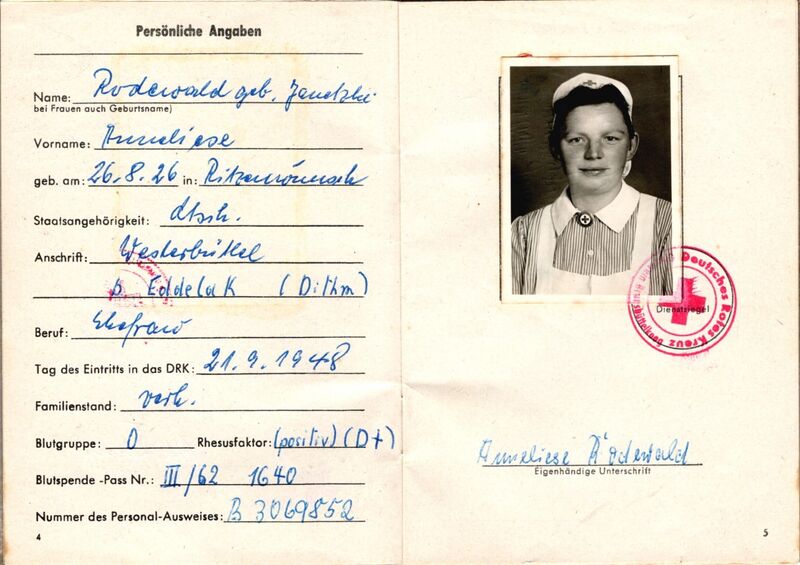 Persönliche Angaben
Name: Rodewald geb. Janetzki
bei Frauen auch Geburtsname)
Vorname: Anneliese
geb. am: 26.8.26 in:
Staatsangehörigkeit: dtsch.
Anschrift: Westerbüttel
b. Eddelak (Dithm)
Beruf: Ehefrau
Tag des Eintritts in das DRK: 21.9.1948
Familienstand: verh.
Blutgruppe: 0 Rhesusfaktor: (positiv) (D+)
Blutspende -Pass Nr.: III/62 1640
Nummer des Personal-Ausweises: B 3069852
4
Deutsches Rotes Kreuz
Dienstsiegel
Anneliese Rodewald
Eigenhändige Unterschrift
5